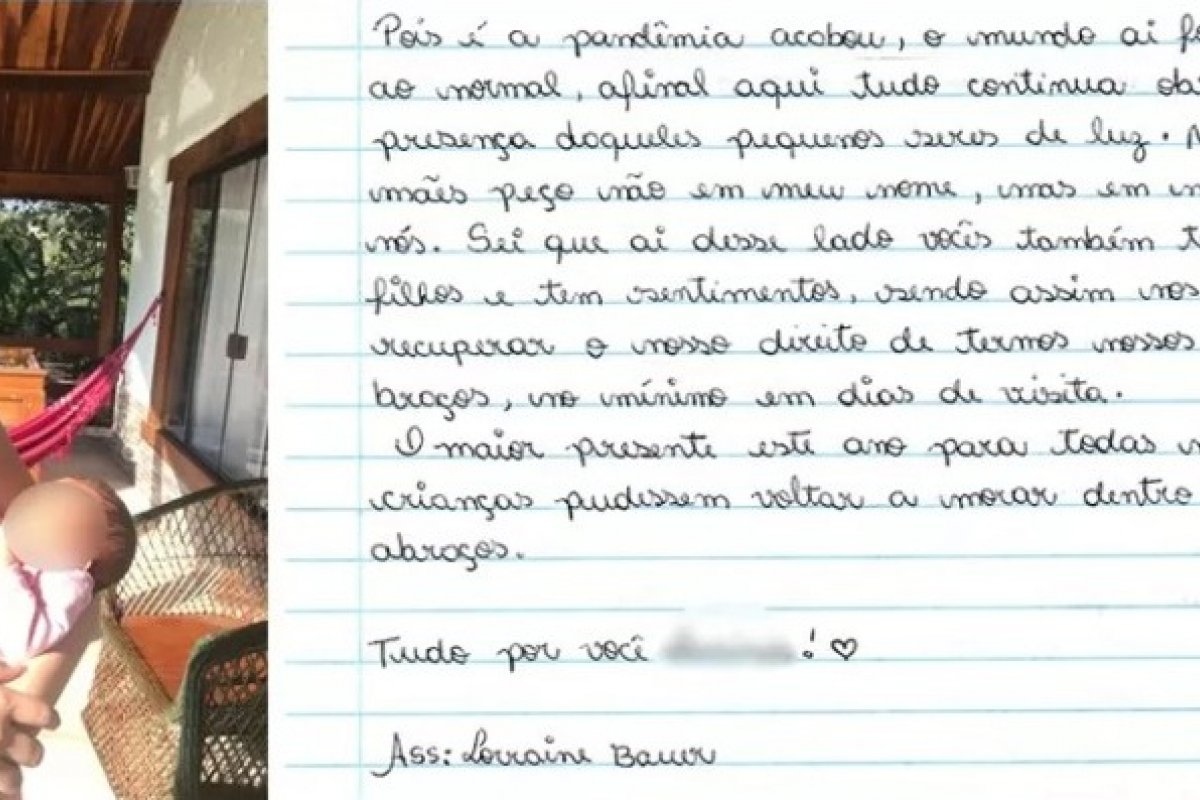 Pois é a pandêmia acabou, o mundo ai
ao normal, afinal aqui tudo continua
presença daqueles pequenos seres de luz.
mães peço não em meu nome, mas em
nós. Sei que ai desse lado vocês também
filhos e tem sentimentos, sendo assim nos
recuperar o nosso direito de termos nossos
braços, no mínimo em dias de visita.
O maior presente este ano para todas
crianças pudessem voltar a morar dentro
abraços.
Tudo por você ! ♡
Ass: Lorraine Bauer